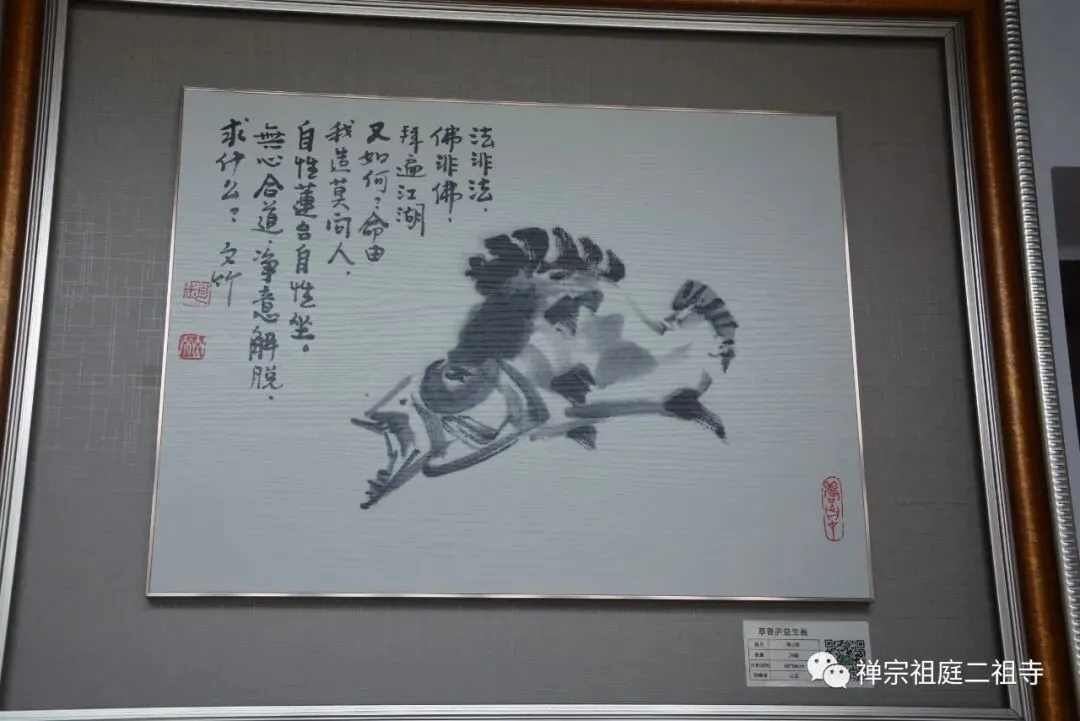 法非法.
佛非佛.
拜遍江湖
又如何?命由
我造莫问人.
自性蓮台自性坐.
無心合道.净意解脱.
求什么?文竹
草香庐益生画
禅宗祖庭二祖寺